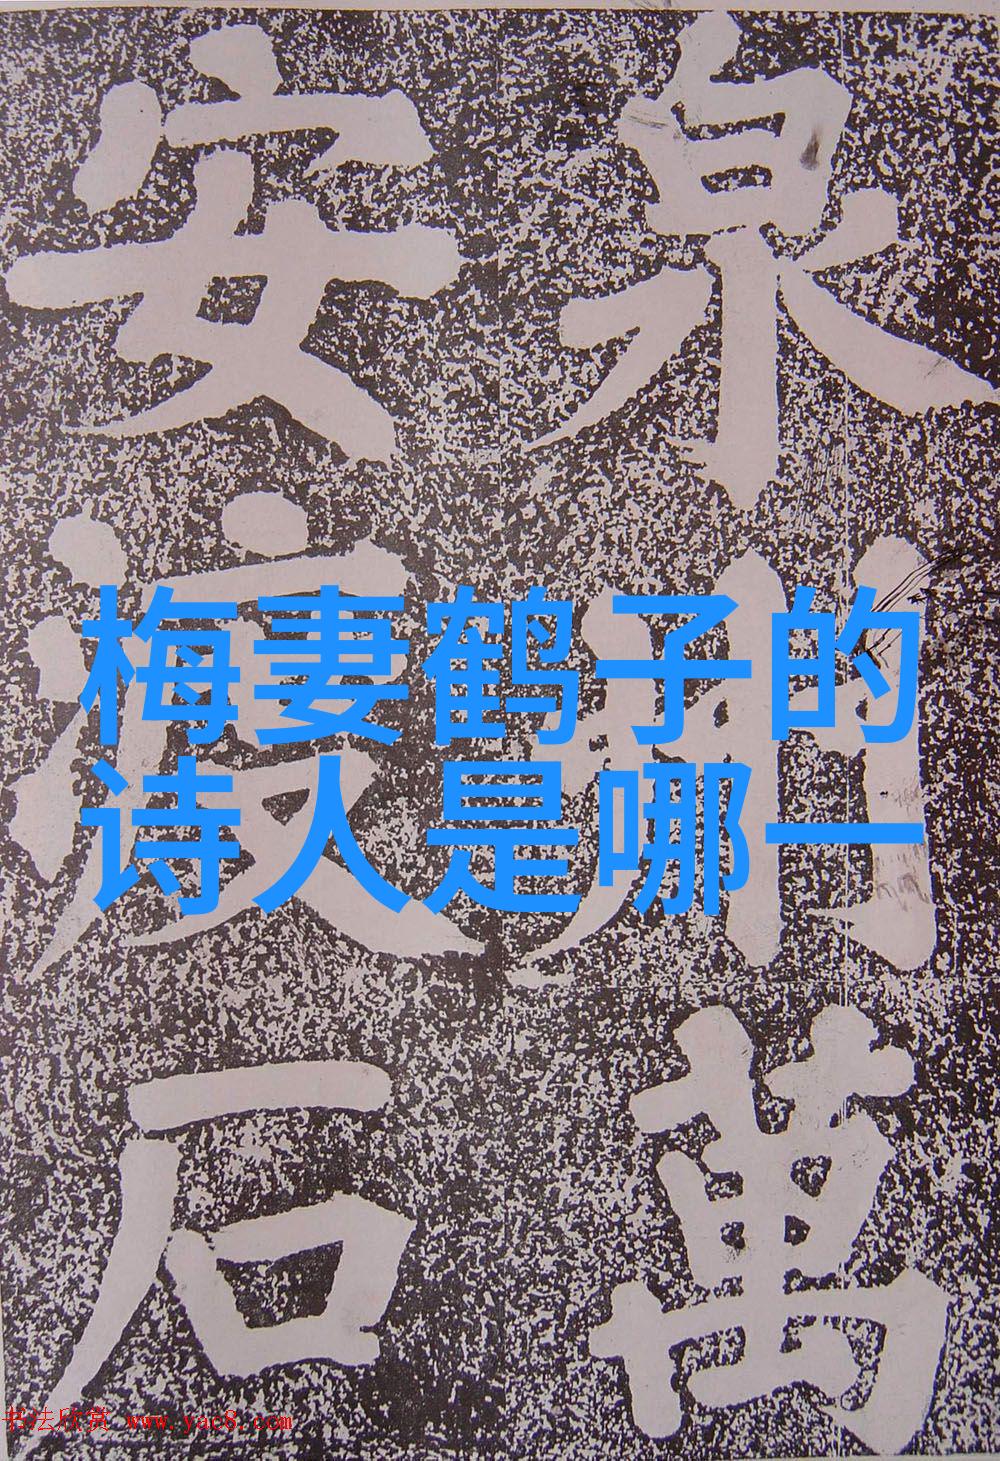 泉州萬
安渡石
梅妻鹤子的
诗人是哪一
书法欣赏 www.yac8.com